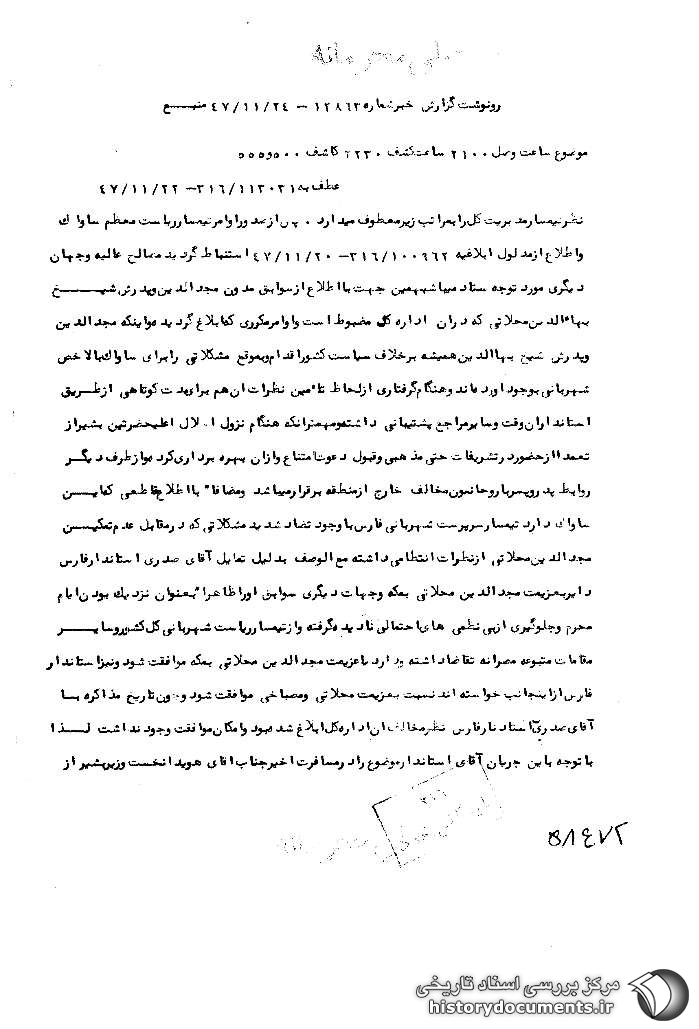 خیلی محرمانه
رونوشت گزارش خبر شماره ۱۲۸۶۳ – ۴۷/۱۱/۲۴ منبـــع
موضوع ساعت وصل ۲۱۰۰ ساعت کشف ۲۲۳۰ کاشف ۵۰۰ و ۵۵۵
عطف به ۳۱۶/۱۱۳۰۳۱ – ۴۷/۱۱/۲۲
نظر تیمسار مدیریت کل را بمراتب زیر معطوف میدارد . پس از صدور اوامر تیمسار ریاست معظم ساواک
و اطلاع از مدلول ابلاغیه ۳۱۶/۱۰۰۹۶۲ – ۴۷/۱۱/۲۰ استنباط گردید مصالح عالیه و جهان
دیگری مورد توجه ستاد میباشد بهمین جهت با اطلاع از سوابق مدون مجدالدین و پدرش شیـــخ
بهاءالدین محلاتی که در ان اداره کل مضبوط است و اوامر مکرری که ابلاغ گردیده و اینکه مجدالدین
و پدرش شیخ بهاالدین همیشه بر خلاف سیاست کشور اقدام و بموقع مشکلاتی را برای ساواک بالاخص
شهربانی بوجود اورده اند و هنگام گرفتاری از لحاظ تامین نظرات ان هم برای مدت کوتاهی از طریق
استاندار ان وقت و سایر مراجع پشتیبانی داشته و مهمتر انکه هنگام نزول اجلال اعلیحضرتین بشیراز
تعمدا از حضور در تشریفات حتی مذهبی و قبول دعوت امتناع و از ان بهره برداری کرده و از طرف دیگـر
روابط پدر و پسر با روحانیون مخالف خارج از منطقه برقرار میباشد و مضافا" با اطلاع قاطعی که ایـن
ساواک دارد تیمسار سرپرست شهربانی فارس با وجود تضاد شدید مشکلاتی که در مقابل عدم تمکیـن
مجدالدین محلاتی از نظرات انتظامی داشته مع الوصف بدلیل تمایل آقای صدری استاندار فارس
دایر بعزیمت مجدالدین محلاتی بمکه و جهات دیگری سوابق او را ظاهرا" بعنوان نزدیک بودن ایام
محرم و جلوگیری از بی نظمی های احتمالی نادیده گرفته و از تیمسار ریاست شهربانی کل کشور و سایـر
مقامات متبوعه مصرانه تقاضا داشته و دارد با عزیمت مجدالدین محلاتی بمکه موافقت شود و نیز استاندار
فارس از اینجانب خواسته اند نسبت بعزیمت محلاتی و مصباحی موافقت شود و چون تاریخ مذاکره بـا
آقای صدری استاندار فارس نظر مخالف ان اداره کل ابلاغ شده بود و امکان موافقت وجود نداشت لـــذا
با توجه باین جریان آقای استاندار موضوع را در مسافرت اخیر جناب اقای هویدا نخست وزیر بشیراز
۵۸۴۷۲
مرکز بررسی اسناد تاریخی
historydocuments.ir